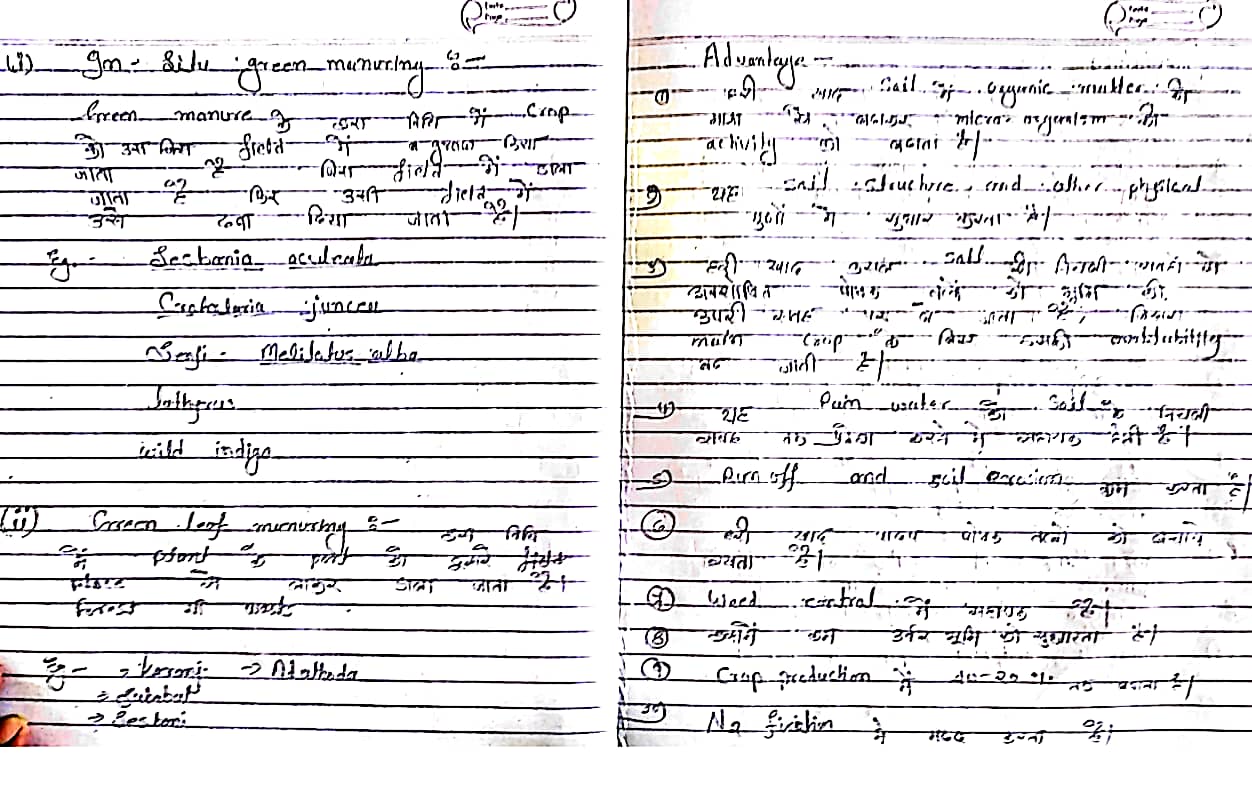 (i) In-situ green manuring :-
Green manure के इस विधि में crop
को उस जिस field में
जाता है जिस field में डाला
जाता है फिर उसी field में
उसे दबा दिया जाता है।
Eg.- Sesbania aculeata
Crotalaria juncea
Senji - Melilotus alba
Lathyrus
wild indigo
(ii) Green leaf manuring :- इस विधि
में plant के को दूसरे
place से लाकर डाला जाता है।
Eg - → Karanj → Adathoda
→
→
Advantage -
① हरी खाद soil में organic matter की
मात्रा को बढाकर micro organism की
activity को बढाता है।
2) यह soil structure and other physical
गुणों में सुधार करता है।
3) हरी खाद soil की निचली सतह के
पोषक को भूमि की
उपरी सतह पर ले आता है, जिससे
main crop के लिए इसकी availability
बढ जाती है।
4) यह Rain water को soil के निचली
सतह तक प्रवेश करने में सहायक होती है।
5) Run off and soil erosion कम करता है।
⑥ हरी खाद पोषक तत्वों को बचाये
रखता है।
⑦ Weed control में सहायक है।
⑧ कम उर्वर भूमि को सुधारता है।
⑨ Crop production में 10-20 % तक बढाता है।
10) N2 fixation में मदद करता है।